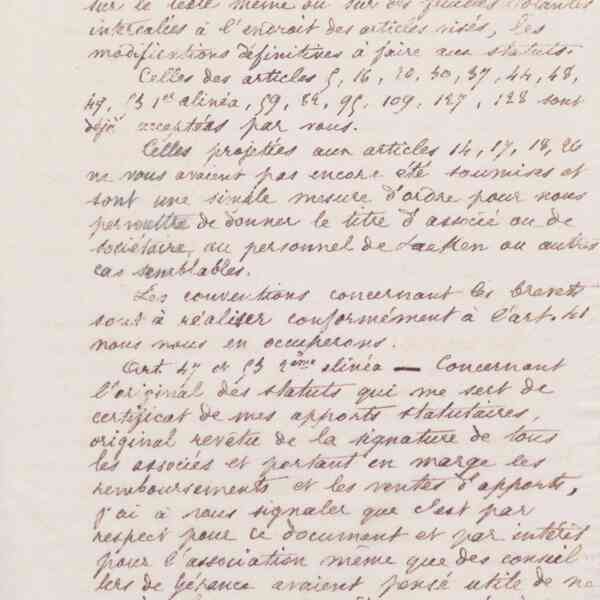 sur le texte même ou sur des feuilles volantes
intercalées à l'endroit des articles visés, les
modifications définitives à faire aux statuts.
Celles des articles 5, 16, 20, 30, 37, 44, 48,
49, 53 1er alinéa, 59, 82, 95, 109, 127, 128 sont
déjà acceptées par vous.
Celles projetées aux articles 14, 17, 18, 26
ne vous avaient pas encore été soumises et
sont une simple mesure d'ordre pour nous
permettre de donner le titre d'associé ou de
sociétaire, au personnel de Laeken ou autres
cas semblables.
Les conventions concernant les brevets
sont à réaliser conformément à l'art. 41
nous nous en occuperons.
Art. 47 et 53 2ème alinéa — Concernant
l'original des statuts qui me sert de
certificat de mes apports statutaires,
original revêtu de la signature de tous
les associés et portant en marge les
remboursements et les ventes d'apports,
j'ai à vous signaler que c'est par
respect pour ce document et par intérêt
pour l'association même que des conseil
lers de Gérance avaient pensé utile de ne